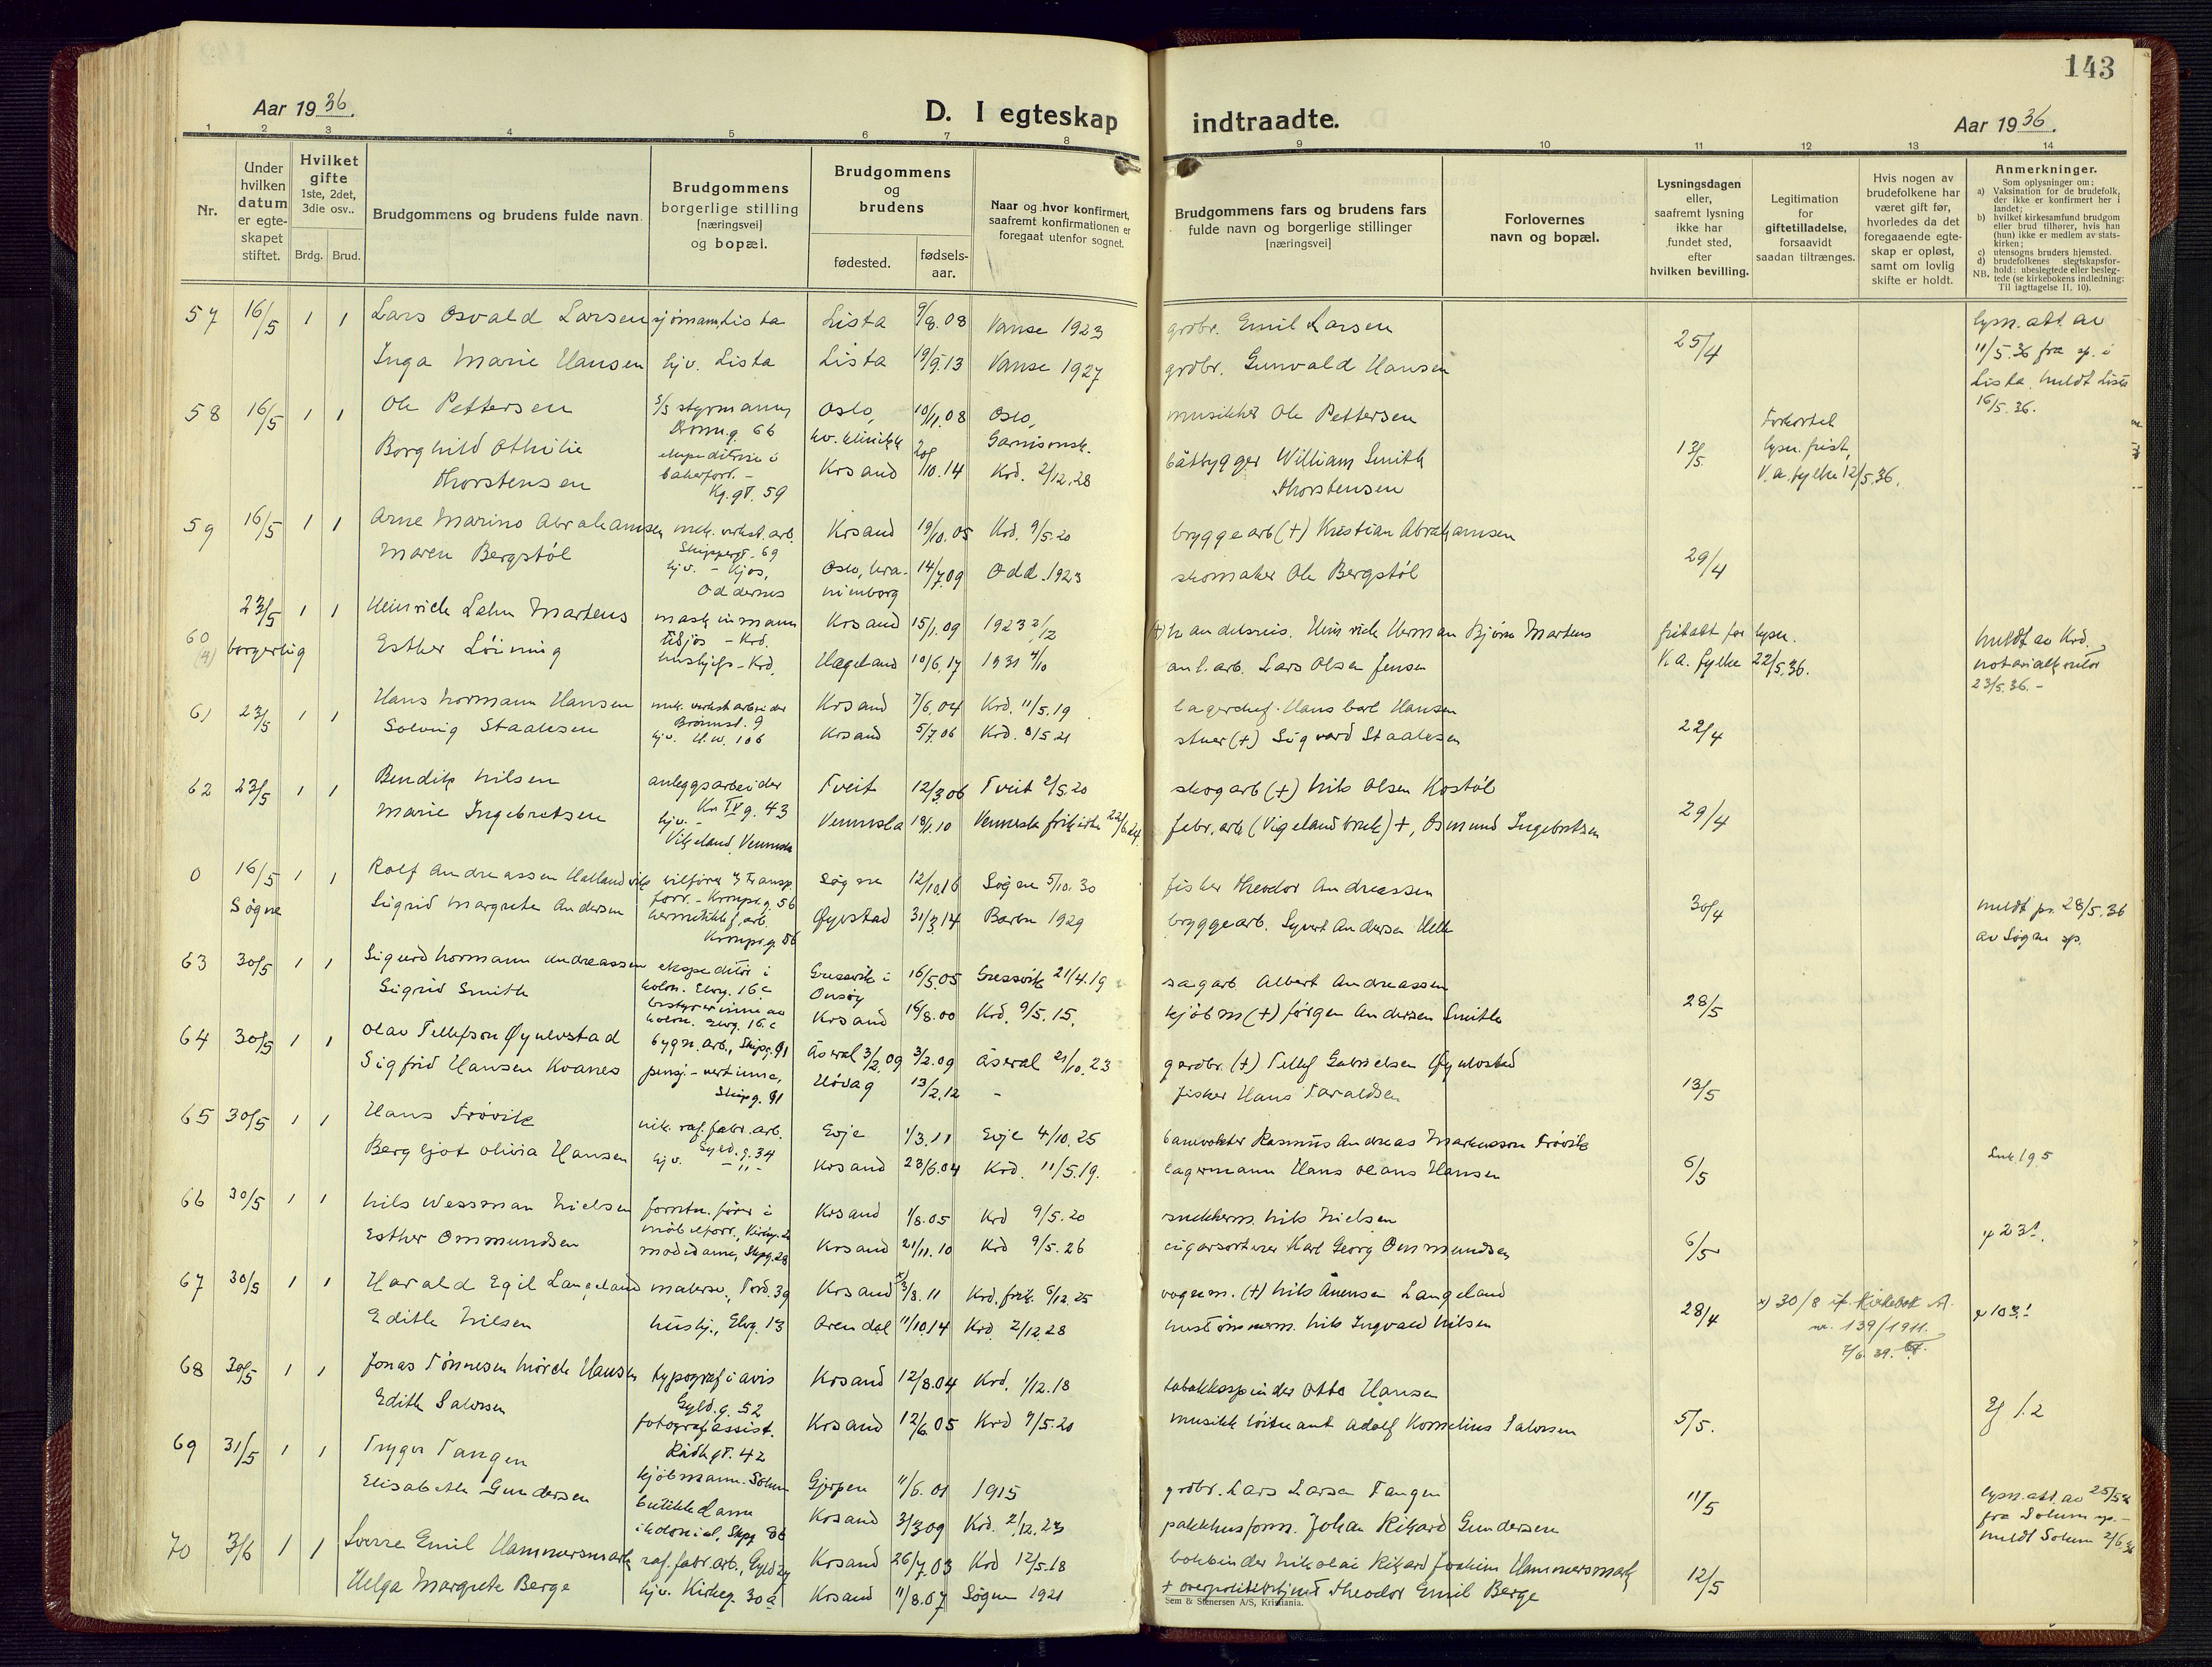 143
Aar 1936.
D. I egteskap indtraadte.
Aar 1936.
1 2 3 4 5 6 7 8 9 10 11 12 13 14
Nr.
Under
hvilken
datum
er egte-
skapet
stiftet.
Hvilket
gifte
1ste, 2det,
3die osv..
Brdg. Brud.
Brudgommens og brudens fulde navn.
Brudgommens
borgerlige stilling
[næringsvei]
og bopæl.
Brudgommens
og
brudens
fødested.
fødsels-
aar.
Naar og hvor konfirmert,
saafremt konfirmationen er
foregaat utenfor sognet.
Brudgommens fars og brudens fars
fulde navn og borgerlige stillinger
[næringsvei]
Forlovernes
navn og bopæl.
Lysningsdagen
eller,
saafremt lysning
ikke har
fundet sted,
efter
hvilken bevilling.
Legitimation
for
giftetilladelse,
forsaavidt
saadan tiltrænges.
Hvis nogen av
brudefolkene har
været gift før,
hvorledes da det
foregaaende egte-
skap er opløst,
samt om lovlig
skifte er holdt.
Anmerkninger.
Som oplysninger om:
a) Vaksination for de brudefolk,
der ikke er konfirmert her i
landet;
b) hvilket kirkesamfund brudgom
eller brud tilhører, hvis han
(hun) ikke er medlem av stats-
kirken;
c) utensogns bruders hjemsted.
d) brudefolkenes slegtskapsfor-
hold: ubeslegtede eller besleg-
tede (se kirkebokens indledning:
NB. Til iagttagelse II, 10).
57 16/5 1 1 Lars Osvald Larsen sjömann, Lista Lista 9/8.08 Vanse 1923 grdbr. Emil Larsen 25/4 lysn. att. av
Inga Marie Hansen hjv. Lista Lista 19/9.13 Vanse 1927 grdbr. Gunvald Hansen 11/5.36 fra sp. i
Lista. meldt Lista
16/5.36.
58 16/5 1 1 Ole Pettersen s/s styrmann, Oslo, 10/11.08 Oslo, musikker Ole Pettersen Forkortet
Dronn.g. 66 kv. klinikk Garnisonsk.
Borghild Othilie ekspeditrise i 20/10.14 båtbygger William Smith 13/5 lysn. frist,
Thorstensen bakerforr. - Krsand Krd. 2/12.28 Thorstensen V.a. fylke 12/5.36.
Kg.gt. 59
59 16/5 1 1 Arne Marino Abrahamsen mek. verkst. arb. Krsand 19/10.05 Krd. 9/5.20 bryggearb (+) Kristian Abrahamsen
Skippergt. 69
Maren Bergstöl hjv. - Kjos, Oslo, Ura- 14/7.09 Odd. 1923 skomaker Ole Bergstöl 29/4
Oddernes nienborg
60 23/5 1 1 Heinrich Lahn Martens maskinmann Krsand 15/1.09 1923 2/12 (+) handelsreis. Heinrich Herman Bjørn Martens fritatt for lysn. meldt av Krd.
(4) borgerlig Esther Lönning hushj. - Krd. Hægeland 10/6.17 1931 4/10 anl. arb. Lars Olsen Jensen V.a. fylke 22/5.36. notarialkontor
23/5.36.-
61 23/5 1 1 Hans Normann Hansen mek. verkst arbeider Krsand 7/6.04 Krd. 11/5.19 lagerchef. Hans Carl Hansen
Brönnst. 9
Solveig Staalesen hjv. H.W. 106 Krsand 5/7.06 Krd. 8/5 21 stuer (+) Sigvard Staalesen 22/4
62 23/5 1 1 Bendik Nilsen anleggsarbeider Tveit 12/3.06 Tveit 2/5.20 skogarb (+) Nils Olsen Kostöl
Kr. IV g. 43
Marie Ingebretsen hjv. - Vennesla 18/1.10 Vennesla frikirke 22/6.24 fabr. arb (Vigeland bruk) +, Osmund Ingebretsen 29/4
Vikeland, Vennesla
0 16/5 1 1 Rolf Andreassen Hallandvik bilförer i transp. Søgne 12/10.16 Søgne 5/10.30 fisker Theodor Andreassen 30/4 meldt pr. 28/5.36
Søgne forr. - Kronpr.g. 56
Sigrid Margrethe Andersen hermetikkf. arb. Øyestad 31/3.14 Barbu 1929 bryggearb. Syvert Andersen Helle av Søgne sp.
Kronpr.g. 56
63 30/5 1 1 Sigurd Normann Andreassen ekspeditör i Gressvik i 16/5.05 Gressvik 21/4.19 sagarb. Albert Andreassen
kolon. Elvg. 16c Onsöy
Sigrid Smith bestyrerinne av Krsand 16/8.00 Krd. 9/5.15. kjöbm (+) Jörgen Andersen Smith 28/5
kolon. Elvg. 16c
64 30/5 1 1 Olav Tellefson Øynlvstad bygn. arb., Skipg. 91 Åseral 3/2.09 3/2.09 Åseral 21/10.23 gardbr. (+) Tellef Gabrielsen Øynlvstad
Sigfrid Hansen Kvanes pensj - vertinne, Hövåg 13/2.12 - fisker Hans Taraldsen 13/5
Skipg. 91
65 30/5 1 1 Hans Frövik nik. raf. fabr. arb. Evje 1/3.11 Evje 4/10.25 banevokter Rasmus Andreas Markusson Frövik
Gyld.g. 34
Bergljot Olivia Hansen hjv. - " - Krsand 23/6.04 Krd. 11/5.19. lagermann Hans Olaus Hansen 6/5
66 30/5 1 1 Nils Wessman Nielsen forretn. förer i Krsand 1/8.05 Krd 9/5.20 snekkerm. Nils Nielsen
möbelforr., Kirkeg.
Esther Ommundsen motedame, Skipg. 28 Krsand 21/11.10 Krd 9/5.26 cigarsorterer Karl Georg Ommundsen 6/5
67 30/5 1 1 Harald Egil Langeland malersv., Tord. 39 Krsand x) 3/8.11 Krd. frik. 6/12.25 vognm. (+) Nils Ånensen Langeland 28/4 x) 30/8 if. Kirkebok A.
Edith Nilsen hushj., Elvg. 13 Arendal 11/10.14 Krd. 2/12.28 hustömmerm. Nils Ingvald Nilsen nr. 139/1911.
7/6.39.
68 30/5 1 1 Jonas Tönnesen Mörch Hansen typograf i avis Krsand 12/8.04 Krd. 1/12.18 tobakkspinder Otto Hansen
Gyld.g. 52
Edith Salvesen fotografassist. Krsand 12/6.05 Krd 9/5.20 musikklöitnant Adolf Kornelius Salvesen 5/5.
Rådhgt. 42
69 31/5 1 1 Trygve Tangen kjöbmann. Solum Gjerpen 11/6.01 1915 grdbr. Lars Larsen Tangen 11/5 lysn. att. av 25/5.36
Elisabeth Gundersen butikkdame Krsand 3/3.09 Krd. 2/12.23 pakkhusform. Johan Rikard Gundersen fra Solum sp. -
i kolonial, Skipg 86 meldt Solum 2/6.36
70 3/6 1 1 Sverre Emil Hammersmark raf. fabr. arb., Gyld Krsand 26/7.03 Krd 12/5.18 bokbinder Nikolai Rikard Joakim Hammersmark 12/5
Helga Margrete Berge hjv. Kirkeg. 30a Krsand 11/8.07 Søgne 1921 + overpolitibetjent Theodor Emil Berge
Sem & Stenersen A/S, Kristiania.